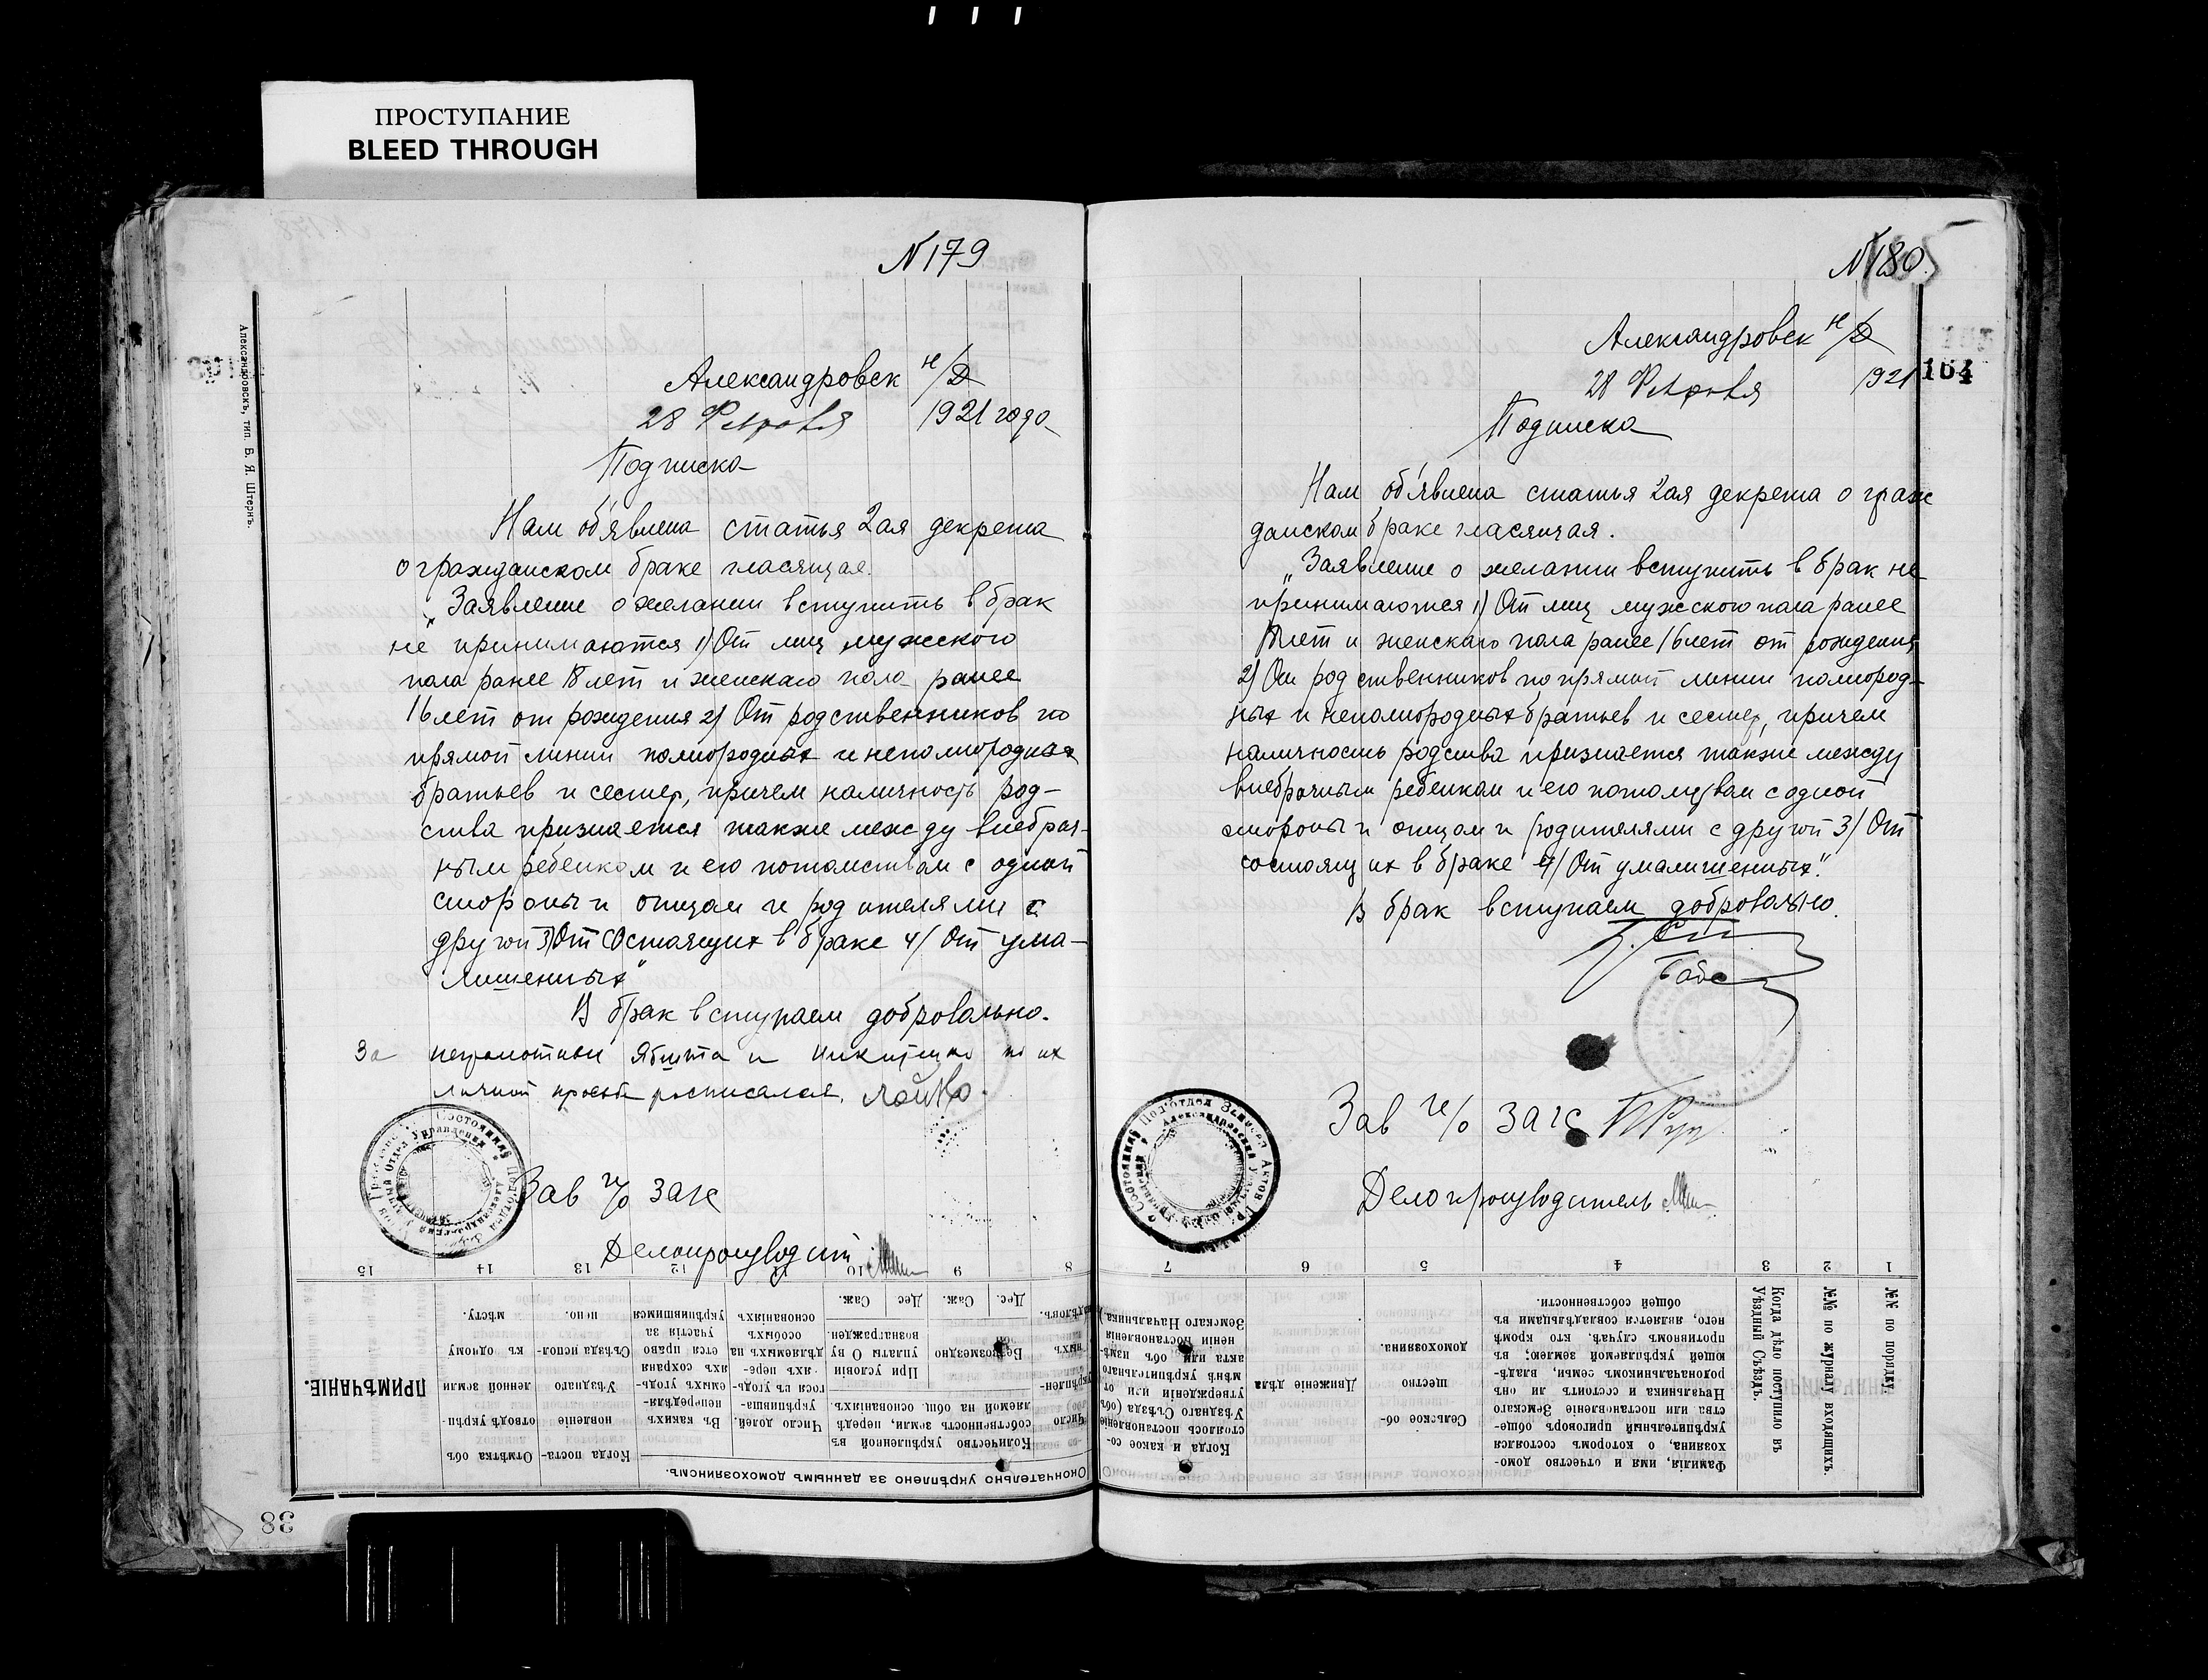 ПРОСТУПАНИЕ
BLEED THROUGH
N 179
Александровск н/Д
28 Февраля 1921 года
Подписка
Нам об'явлена статья 2ая декрета
о гражданском браке гласящая.
„Заявление о желании вступить в брак
не принимаются 1) От лиц мужского
пола ранее 18 лет и женскаго пола ранее
16 лет от рождения 2) От родственников по
прямой линии полнородных и неполнородных
братьев и сестер, причем наличность род-
ства признается также между внебрач-
ным ребенком и его потомством с одной
стороны и отцом и родителями с
другой 3) От состоящих в браке 4) От ума-
лишенных"
В брак вступаем добровольно.
За неграмотных и Никитенко по их
личной просьбе расписался.
Зав п/о загс
Делопроизводит
Александровскъ, тип. Б. Я. Штернъ.
15 14 13 12 11 10 9 8
ПРИМѢЧАНІЕ.
Отмѣтка объ отводѣ укрѣпленной земли къ одному мѣсту.
Когда постановленіе Уѣзднаго Съѣзда исполнено.
Окончательно укрѣплено за даннымъ домохозяиномъ.
Въ какихъ непередѣляемыхъ угодьяхъ сохраняется право участія за укрѣпившимся
Число долей.
Количество укрѣпленной въ собственность земли, передѣляемой на общ. основаніяхъ.
При условіи уплаты О ву вознагражден.
Безвозмездно
Дес. Саж. Дес. Саж.
38
N 180.
164
Александровск н/Д
28 Февраля 1921
Подписка
Нам об'явлена статья 2ая декрета о граж
данском браке гласящая.
„Заявление о желании вступить в брак не
принимаются 1) От лиц мужского пола ранее
18 лет и женскаго пола ранее 16 лет от рождения
2) От родственников по прямой линии полнород-
ных и неполнородных братьев и сестер, причем
наличность родства признается также между
внебрачным ребенком и его потомством с одной
стороны и отцом и родителями с другой 3) От
состоящих в браке 4) От умалишенных".
В брак вступаем добровольно.
Зав п/о загс
Делопроизводитель
7 6 5 4 3 2 1
Когда и какое состоялось постановленіе Уѣзднаго Съѣзда
Движеніе дѣла
Сельское общество домохозяина.
Фамилія, имя и отчество домохозяина, о которомъ состоялся укрѣпительный приговоръ общества или постановленіе Земскаго Начальника и состоитъ ли онъ родоначальникомъ семьи, владѣющей укрѣпляемой землею; въ противномъ случаѣ. кто кромѣ него, является совладѣльцами въ общей собственности.
Когда дѣло поступило въ Уѣздный Съѣздъ.
№№ по журналу входящихъ.
№№ по порядку